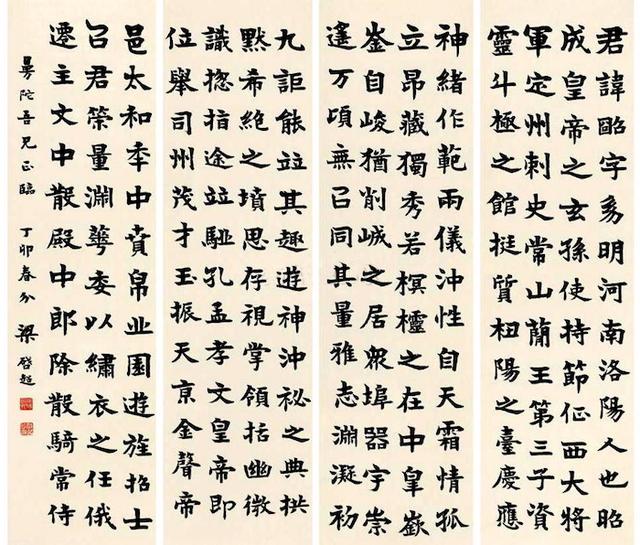 君諱昭字幼明河南洛陽人也昭
成皇帝之玄孫使持節征西大將
軍定州刺史常山蕳王第三子資
靈斗極之館挺質杻陽之臺慶應
神緒作範兩儀沖性自天霜情孤
立昂藏獨秀若榠櫨之在中皐嶽
崟自峻猶削峸之居衆埠器宇崇
邃万頃無㠯同其量雅志淵凝初
九詎能竝其趣遊神沖祕之典拱
默希絶之墳思存視掌領括幽微
識揔指途竝駈孔孟孝文皇帝即
位舉司州茂才玉振天京金聲帝
邑太和年中賁帛丘園遊旌招士
㠯君策量淵華委以繡衣之任俄
遷主文中散殿中郎除散騎常侍
曼陀吾兄正臨 丁卯春分 梁啓超